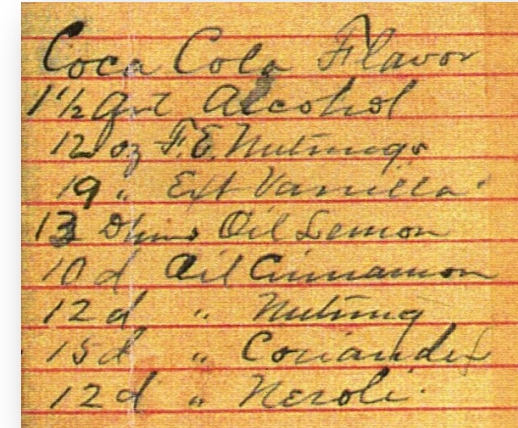 Coca Cola Flavor
1 1/2 qrt Alcohol
12 oz F.E. Nutmegs
19 " Ext Vanilla
13 Drms Oil Lemon
10 d Oil Cinnamon
12 d " Nutmeg
15 d " Coriander
12 d " Neroli